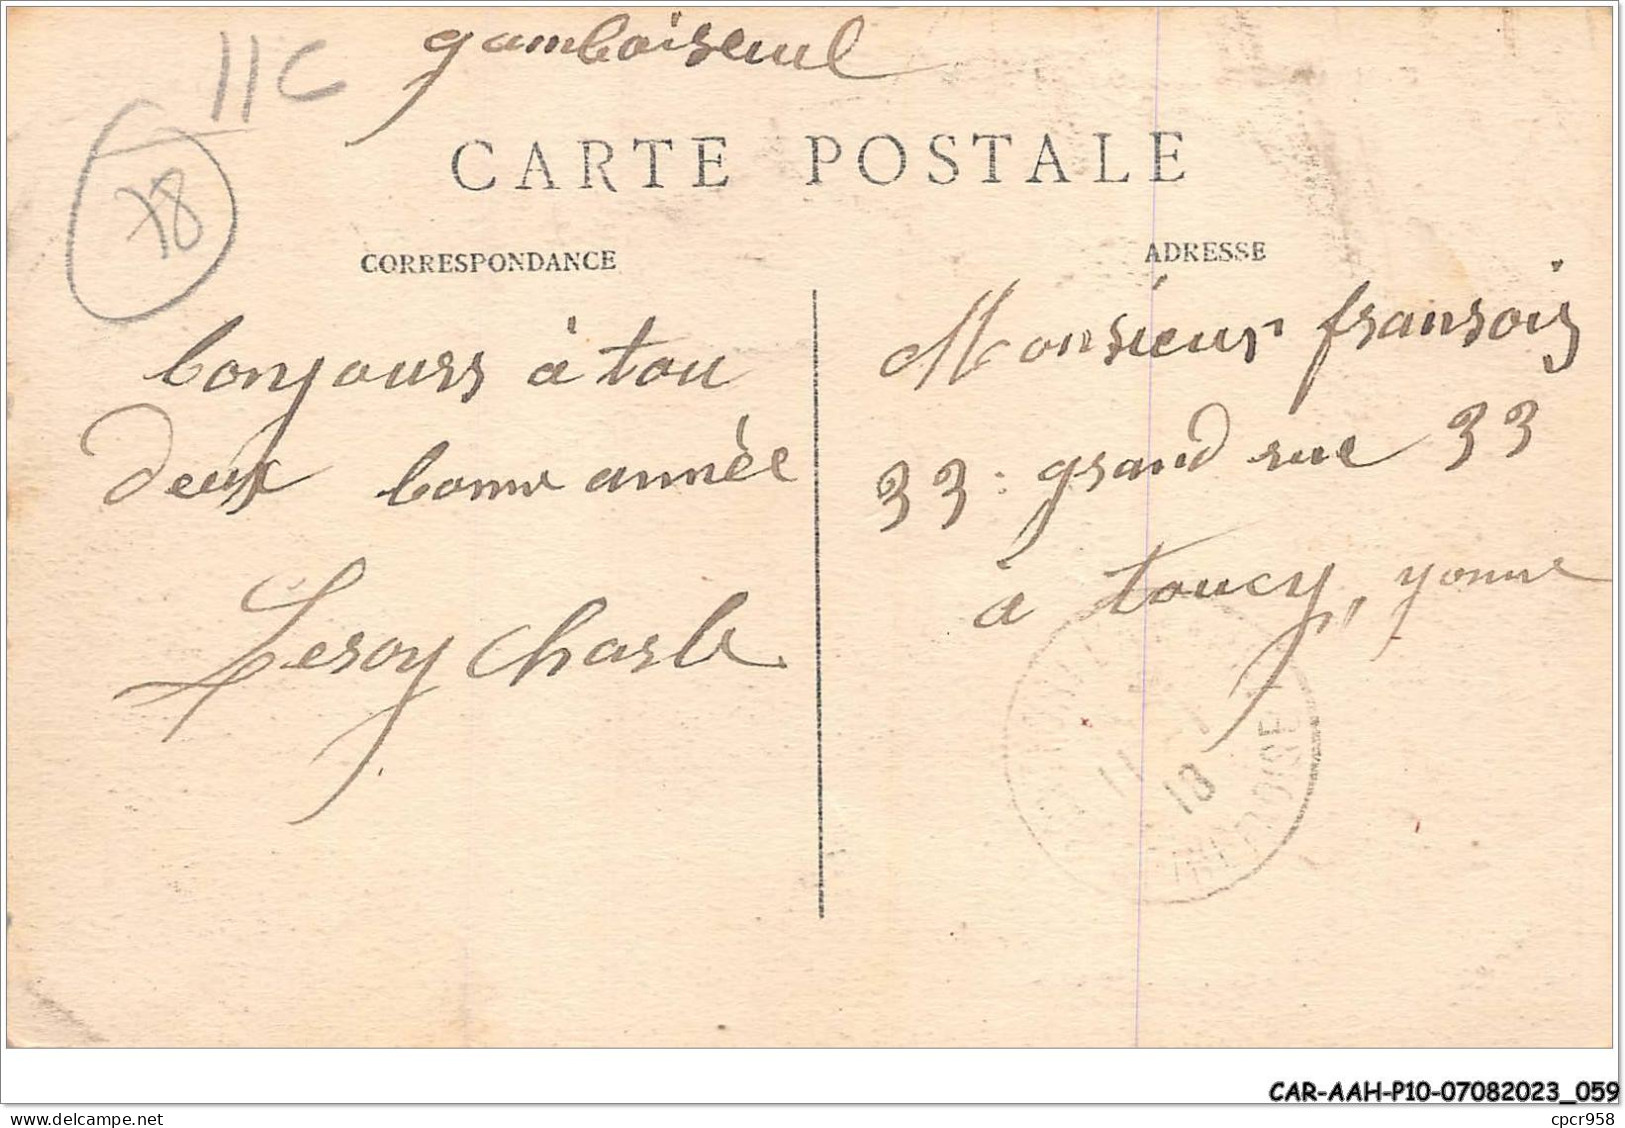 gamboiseuil
11C
78
CARTE POSTALE
CORRESPONDANCE
ADRESSE
bonjours à tou
deux bonne année
Leroy Charle
Monsieur fransois
33 : grand rue 33
à toucy, yonne
11 - 1
18
SEINE-ET-OISE
CAR-AAH-P10-07082023_059
cpcr958